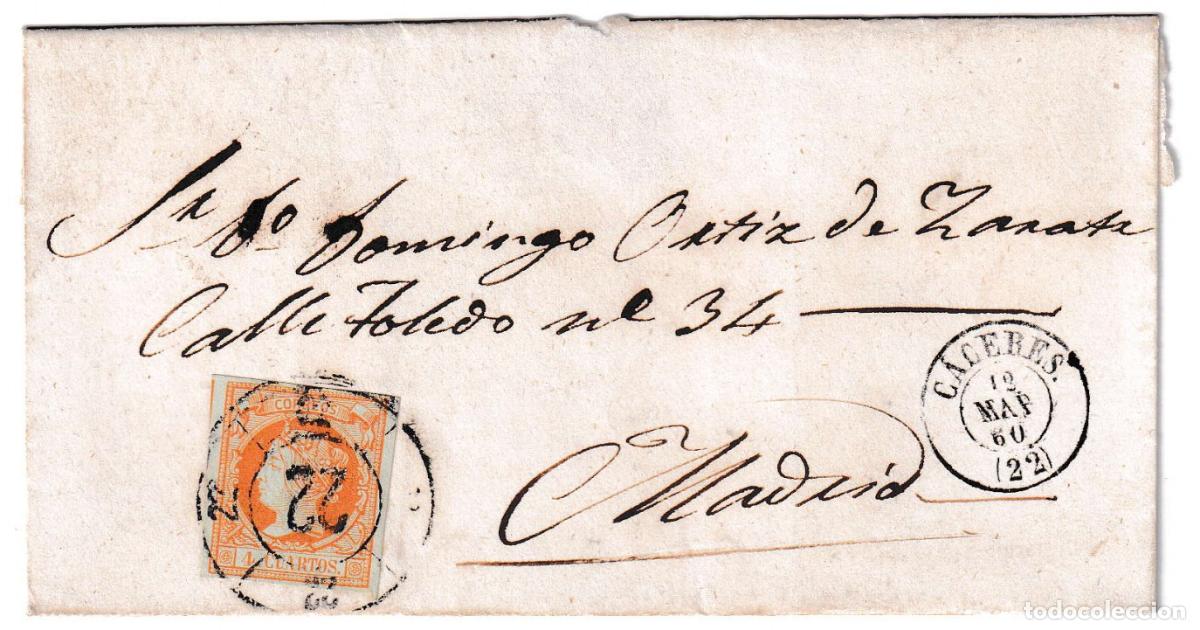 Sr Dº Domingo Ortiz de Zarate
Calle Toledo nº 34
CÁCERES.
12
MAR
60
(22)
CORREOS
22
22
4 CUARTOS.
22
Madrid
todocoleccion